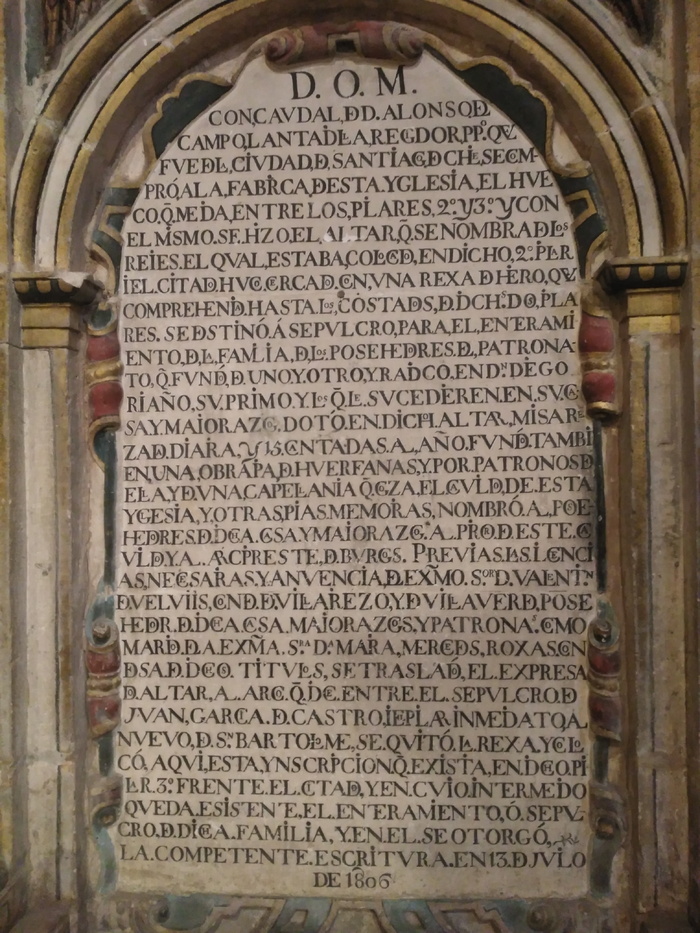 D. O. M.
CON,CAVDAL,D.D. ALONSO,D,
CAMPO,LANTAD,LA.REGDOR,PP.º QVE
FVE.DE,CIVDAD,D,SANTIAG,D,CHLE,SE,CM-
PRÓ,A LA,FABRCA,DESTA.YGLESIA,EL HVE
CO,Q̄.MEDIA,ENTRE LOS,PILARES, 2.º Y 3.º Y CON
EL MISMO.SE.HIZO.EL.ALTAR.Q̄.SE NOMBRA.D.LOS
REIES.EL QVAL,ESTABA,COLCD,EN DICHO, 2.º PILR
I EL.CITAD.HVE.CERCAD.CN,VNA REXA D HIERO, QVE
COMPREHEND.HASTA.Los,COSTADS,D.DICHS.DO,PLA
RES. SE DSTINÓ.Á SEPVLCRO,PARA,EL,ENTERAMI
ENTO.D.LA.FAMLIA,D.Los.POSEHEDRES.DL,PATRONA-
TO,Q̄.FVND,D.UNO.Y OTRO,Y.RADCO.EN D.n DIEGO
RIAÑO,SV.PRIMO.Y Los Q̄.LE.SVCEDEREN.EN,SV.CA
SA.Y MAIORAZG. DOTÓ.EN.DICH.ALTAR,MISA RE-
ZAD.DIARA, Y 15.CNTADAS.AL,AÑO.FVND.TAMBI
EN,UNA,OBRA,PA,D.HVERFANAS,Y.POR.PATRONOS D
ELLA.Y D.VNA,CAPELLANIA Q̄.GZA.EL.CVLD.DE.ESTA
YGESIA,Y.OTRAS,PIAS.MEMORAS, NOMBRÓ.A.POE-
HEDRES.D.DCA.CSA.Y MAIORAZG.º A.PRO.D.ESTE.C
VLD.Y.AL.ARCPRESTE.D.BVRGS. PREVIAS.LAS.LICNCI
AS,NECSARAS.Y.ANVENCIA,D.EXMO. Sor D.VALENTIN
D.VELVIIS,CND.D.VILLAREZO,Y.D.VILLAVERD,POSE
HEDR.D.DCA.CSA.MAIORAZGS,Y PATRONAS.CMO
MARD.D.LA EXMA. SRA. D.a MARIA,MERCEDS,ROXAS,CN
DSA.D.DCO. TITVLS, SE TRASLAD, EL.EXPRESA
D.ALTAR,AL.ARC.Q̄.DCE.ENTRE.EL.SEPVLCRO.D
JVAN,GARCA.D.CASTRO,I EL PLAR INMEDATO,AL
NVEVO,D.Sn.BARTOLOME,SE.QVITÓ.LA.REXA,Y CLO
CÓ.AQVI,ESTA,YNSCRIPCION.Q̄.EXISTIA,EN.DCO.PI
LR. 3.º FRENTE.EL.CTAD,Y.EN.CVIO.INTERMEDO
QVEDA.ESISTENTE,EL.ENTERAMIENTO,Ó.SEPV-
CRO.D.DICEA.FAMILIA,Y.EN.EL.SE OTORGÓ,
LA.COMPETENTE.ESCRITVRA.EN 13.D JVLO
DE 1806